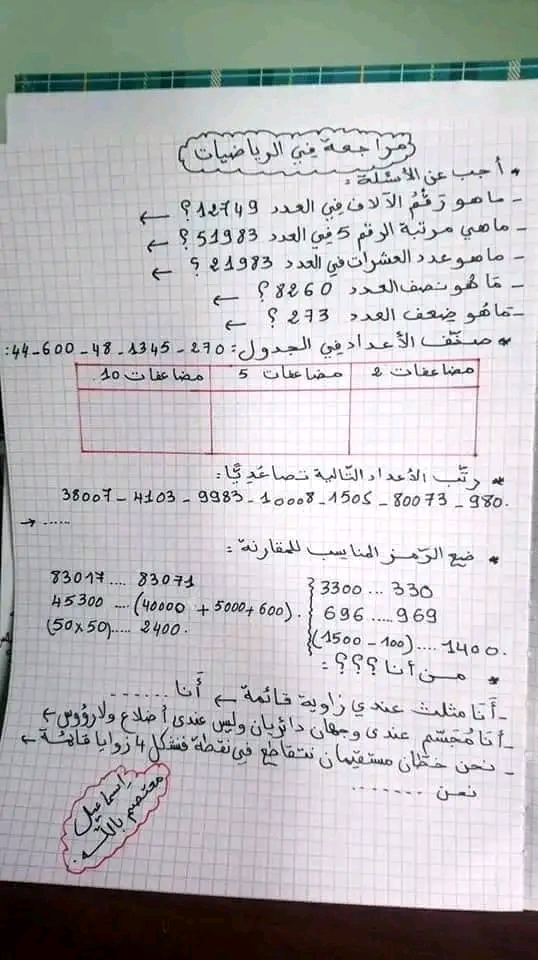 مراجعة في الرياضيات
* أجب عن الأسئلة:
- ما هو رقم الآلاف في العدد 12749؟ ←
- ماهي مرتبة الرقم 5 في العدد 51983؟ ←
- ماهو عدد العشرات في العدد 21983؟ ←
- مَا هُو نصف العدد 8260؟ ←
- مَا هُو ضِعف العدد 273؟ ←
* صنّف الأعداد في الجدول: 270 - 1345 - 48 - 600 - 44:
مضاعفات 2 مضاعفات 5 مضاعفات 10
* رتّب الأعداد التّالية تصاعديًّا:
38007 - 4103 - 9983 - 10008 - 1505 - 80073 - 980.
→ ......
* ضع الرّمز المناسب للمقارنة:
83017 .... 83071
3300 ... 330
45300 .... (40000 + 5000 + 600).
696 .... 969
(50x50) .... 2400.
(1500 - 100) .... 1400.
* من أنا ؟؟؟:
- أَنا مثلث عندي زاوية قائمة ← أَنا ......
- أنا مُجَسّم عندي وجهان دائريان وليس عندي أضلاع ولا رؤوس ←
- نحن خطّان مستقيمان نتقاطع في نقطة فنشكل 4 زوايا قائمة ←
نحن .......
إسماعيل
معتصم بالله.